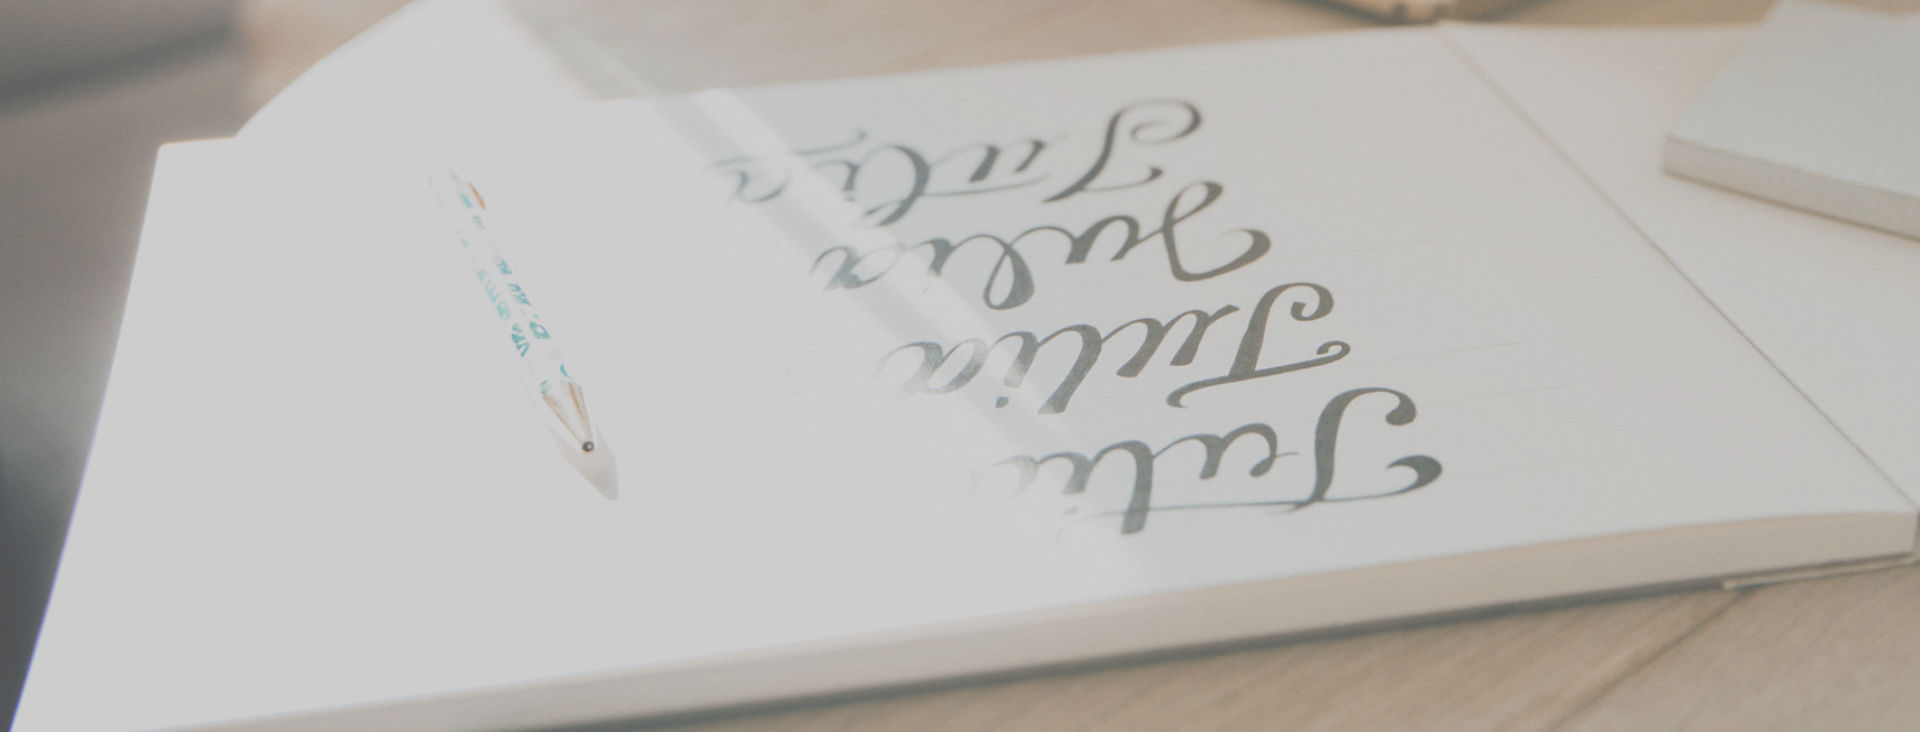 Julia
Julia
Julia
Julia